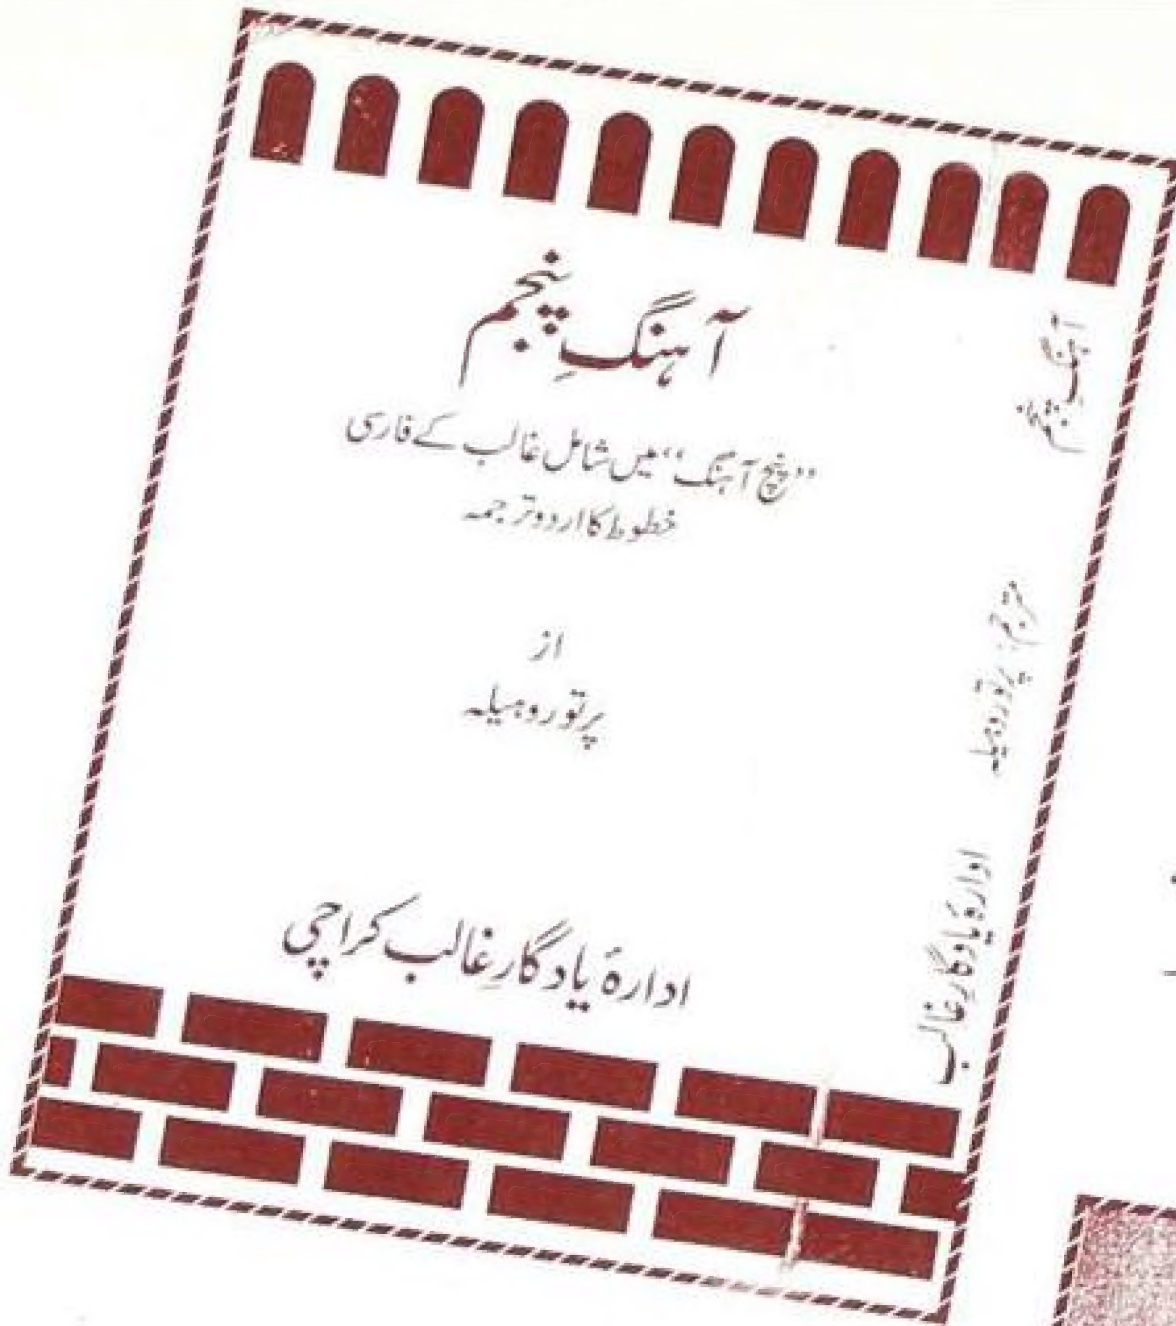 آہنگِ پنجم
”پنچ آہنگ“ میں شامل غالب کے فارسی
خطوط کا اردو ترجمہ
از
پرتو روہیلہ
ادارۂ یادگارِ غالب کراچی
مترجم: پرتو روہیلہ
ادارۂ یادگارِ غالب